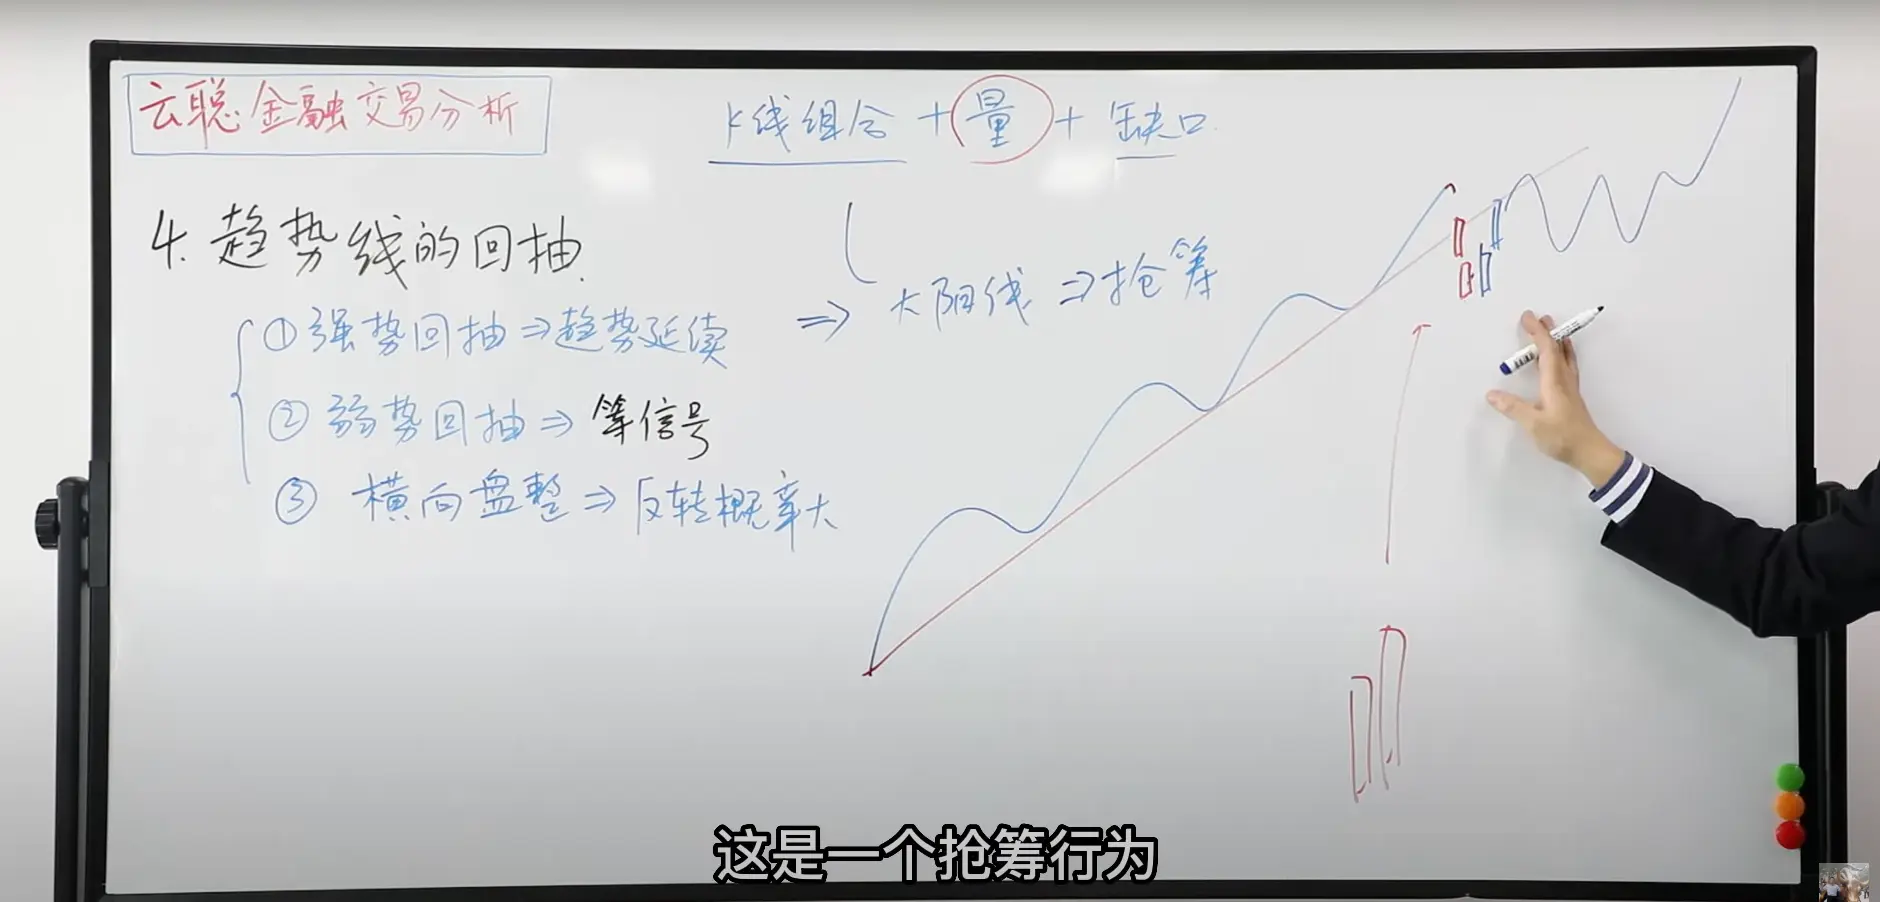 云聪金融交易分析
K线组合+量+缺口
4.趋势线的回抽
①强势回抽⇒趋势延续
⇒大阳线⇒抢筹
②弱势回抽⇒等信号
③横向盘整⇒反转概率大
这是一个抢筹行为